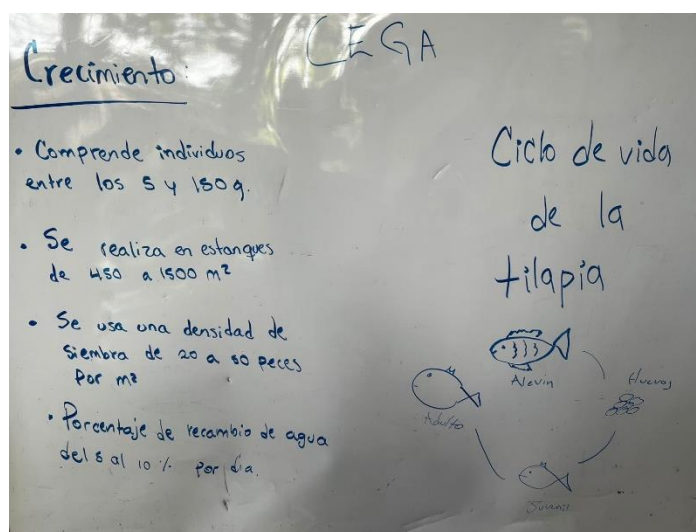 CEGA
Crecimiento:
• Comprende individuos
entre los 5 y 150g.
• Se realiza en estanques
de 450 a 1500 m²
• Se usa una densidad de
siembra de 20 a 50 peces
por m²
• Porcentaje de recambio de agua
del 5 al 10% por dia.
Ciclo de vida
de la
tilapia
Alevin
Huevos
Adulto
Juvenil